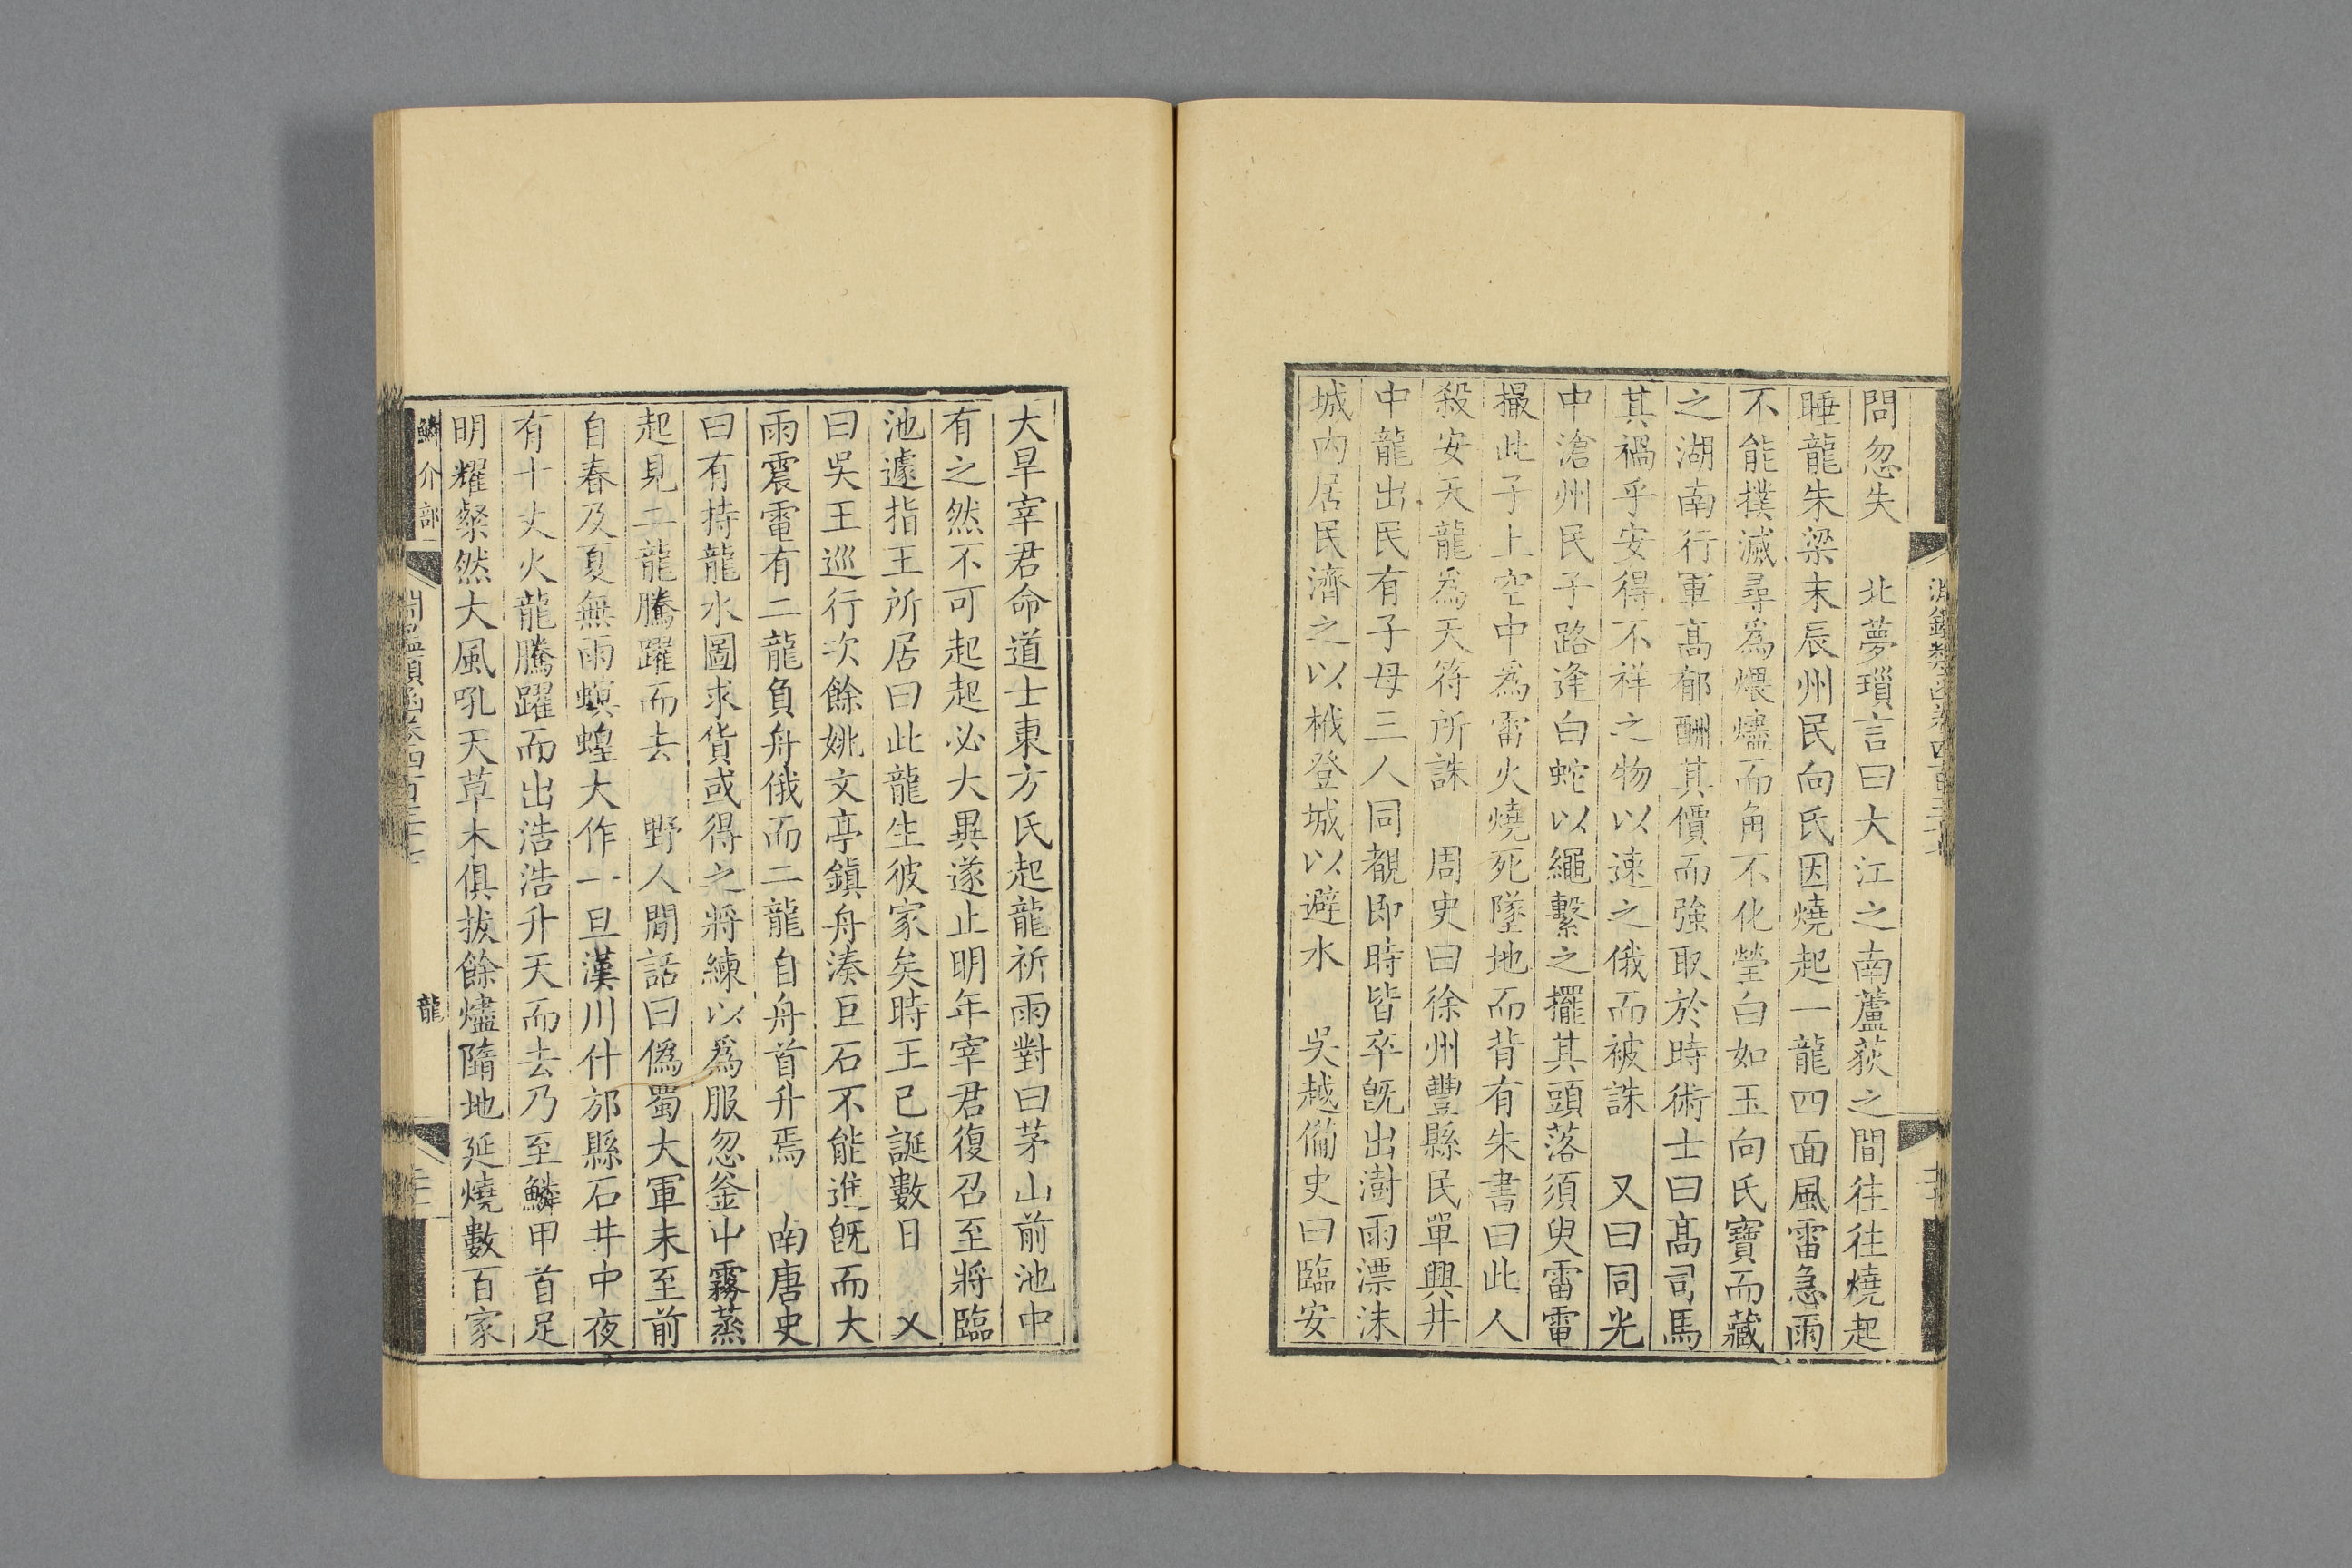 問忽失　北夢瑣言曰大江之南蘆荻之間往往燒起
睡龍朱梁末辰州民向氏因燒起一龍四面風雷急雨
不能撲滅尋爲煨燼而角不化瑩白如玉向氏寶而藏
之湖南行軍高郁酬其價而強取於時術士曰高司馬
其禍乎安得不祥之物以速之俄而被誅　又曰同光
中滄州民子路逢白蛇以繩繫之擺其頭落須臾雷電
撮此子上空中爲雷火燒死墜地而背有朱書曰此人
殺安天龍爲天符所誅　周史曰徐州豐縣民單興井
中龍出民有子母三人同覩即時皆卒旣出澍雨漂沬
城内居民濟之以栰登城以避水　吳越備史曰臨安
大旱宰君命道士東方氏起龍祈雨對曰茅山前池中
有之然不可起起必大異遂止明年宰君復召至將臨
池遽指王所居曰此龍生彼家矣時王已誕數日　又
曰吳王巡行次餘姚文亭鎮舟湊巨石不能進旣而大
雨震電有二龍負舟俄而二龍自舟首升焉　南唐史
曰有持龍水圖求貨或得之將練以爲服忽釜中霧蒸
起見二龍騰躍而去　野人閒話曰僞蜀大軍未至前
自春及夏無雨螟蝗大作一旦漢川什邡縣石井中夜
有十丈火龍騰躍而出浩浩升天而去乃至鱗甲首足
明耀粲然大風吼天草木俱拔餘燼隋地延燒數百家
鱗介部一
龍